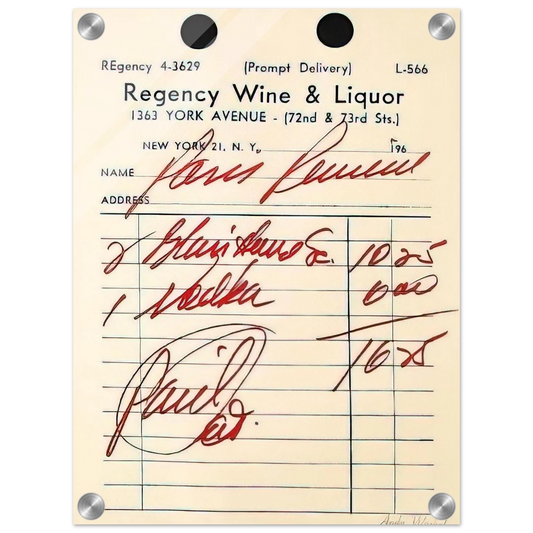 REgency 4-3629 (Prompt Delivery) L-566
Regency Wine & Liquor
1363 YORK AVENUE - (72nd & 73rd Sts.)
NEW YORK 21, N. Y., 196
NAME
ADDRESS
2 Sc. 10 25
1 Vodka 6 00
16 25
Paid